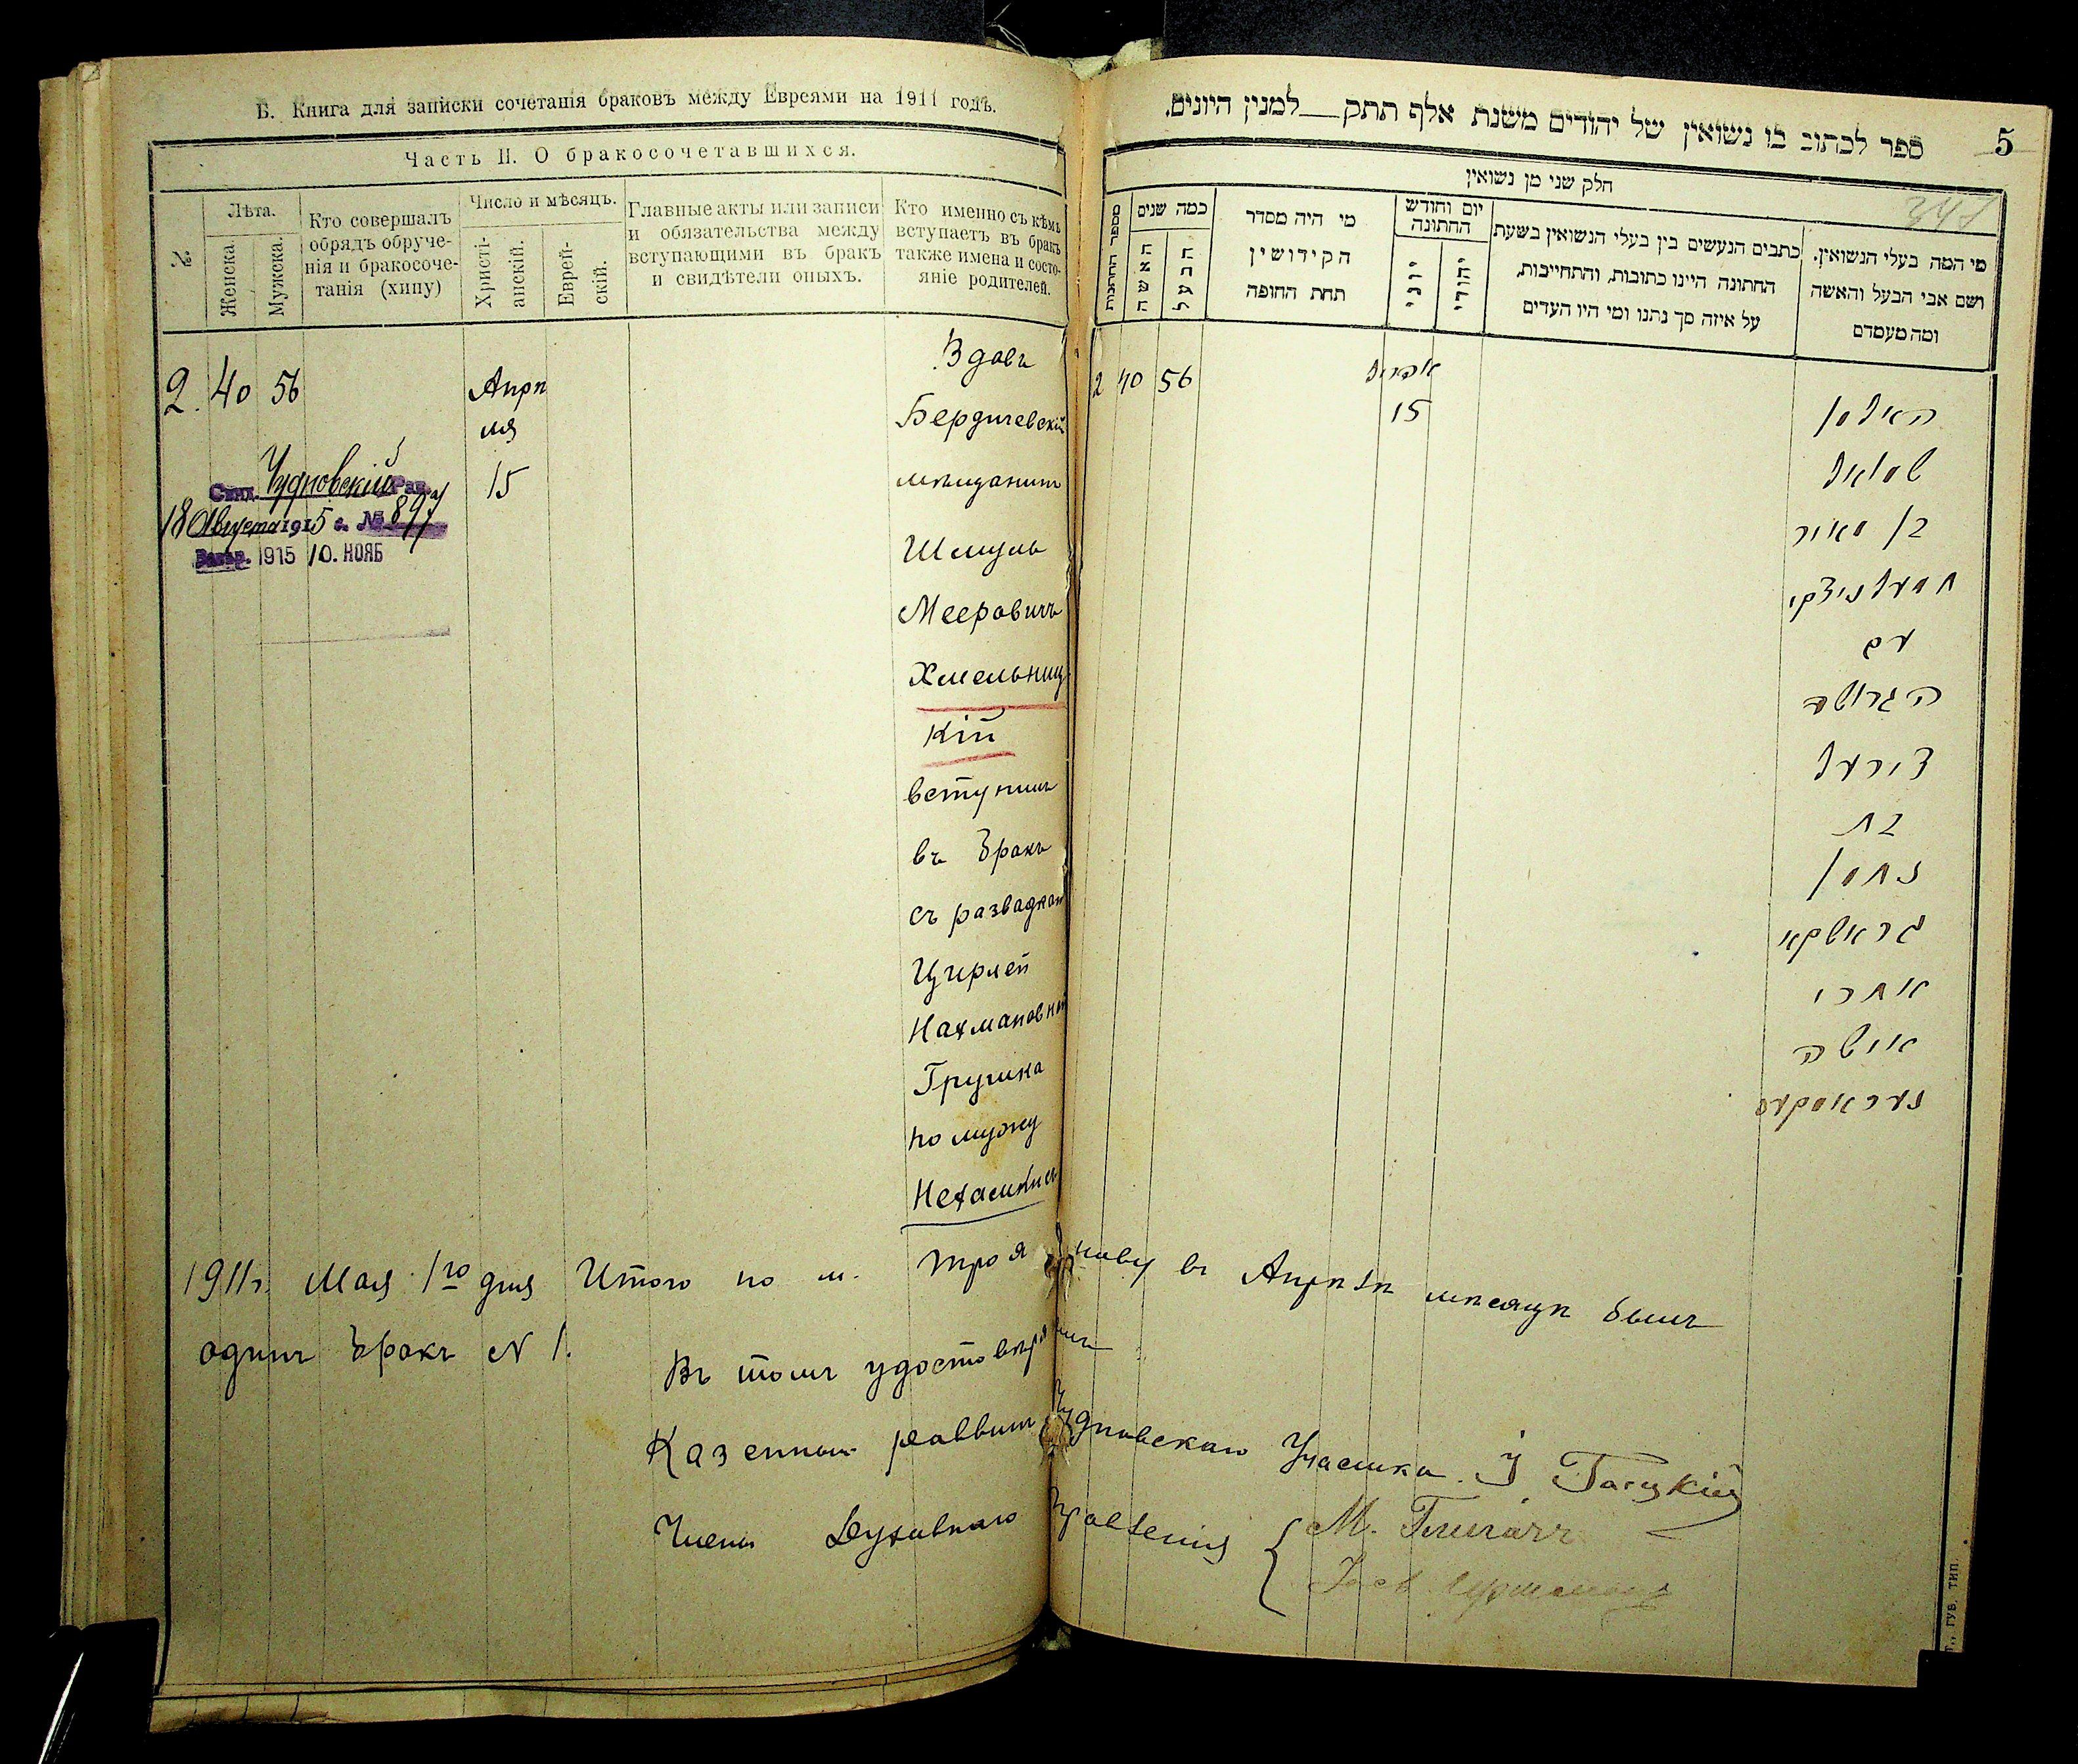 Б. Книга для записки сочетанія браковъ между Евреями на 1911 годъ.
Часть II. О бракосочетавшихся.
№
Лѣта.
Женска.
Мужска.
Кто совершалъ
обрядъ обруче-
нія и бракосоче-
танія (хипу)
Число и мѣсяцъ.
Христі-
анскій.
Еврей-
скій.
Главные акты или записи
и обязательства между
вступающими въ бракъ
и свидѣтели оныхъ.
Кто именно съ кѣмъ
вступаетъ въ бракъ
также имена и состо-
яніе родителей.
2. 40 56
Апрѣ
ля
15
Вдовъ
Бердичевскій
мѣщанинъ
Шмуль
Мееровичъ
Хмельниц
кій
вступилъ
въ бракъ
съ разводкой
Цирлей
Нахмановной
Грушка
по мужу
Чудновскій Рав.
18 Августа 1915 г. № 897
1915 10. НОЯБ
ספר לכתוב בו נשואין של יהודים משנת אלף תתק__למנין היונים.
5
347
חלק שני מן נשואין
מספר החתונות
כמה שנים
האשה
הבעל
מי היה מסדר
הקידושין
תחת החופה
יום וחודש
החתונה
יוני
יהודי
כתבים הנעשים בין בעלי הנשואין בשעת
החתונה היינו כתובות, והתחייבות,
על איזה סך נתנו ומי היו העדים
מי המה בעלי הנשואין.
ושם אבי הבעל והאשה
ומה מעמדם
2 40 56
אפריל
15
האלמן
שמואל
בן מאיר
חמעלניצקי
עם
הגרושה
צירעל
בת
נחמן
אחרי
אישה
1911г. Мая 1го дня Итого по м. Троянову въ Апрѣлѣ мѣсяцѣ былъ
одинъ бракъ N 1.
Въ томъ удостовѣряемъ
Казенный раввинъ Чудновскаго Участка
Члены Духовнаго Правленія
ГУБ. ТИП.